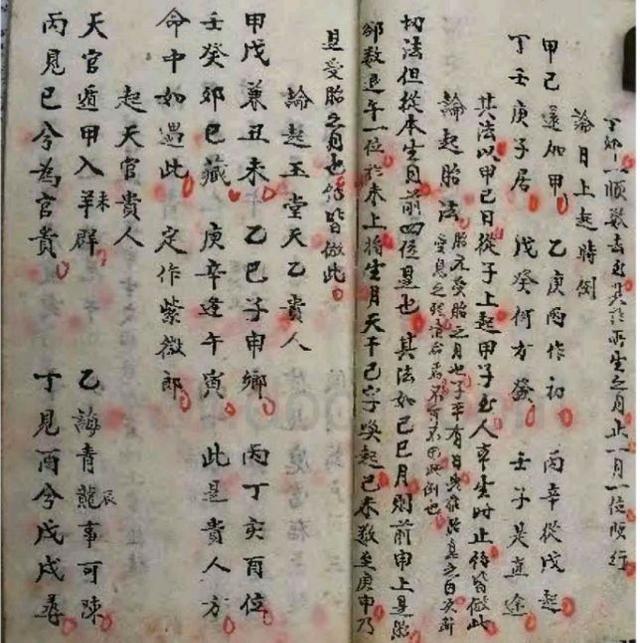 順數去至其於所生之月止一月一位順行
論日上起時例
甲己還加甲 乙庚丙作初 丙辛從戊起
丁壬庚子居 戊癸何方發 壬子是直途
其法以甲己日從子上起甲子至人辛生時止餘皆倣此
論起胎法 胎元受胎之月也子平有曰
受息之 不可不用此例也
切法但從本生月前四位是也 其法如己巳月則前申上是胎
卻數退午一位於未上將生月天干己字喚起己未數至庚申乃
是受胎之月也餘皆倣此
論起玉堂天乙貴人
甲戊兼丑未 乙己子申鄉 丙丁亥酉位
壬癸卯巳藏 庚辛逢午寅 此是貴人方
命中如遇此 定作紫微郎
起天官貴人
天官遁甲入羊未群 乙誨青龍辰事可陳
丙見巳兮為官貴 丁見酉兮戊戌尋